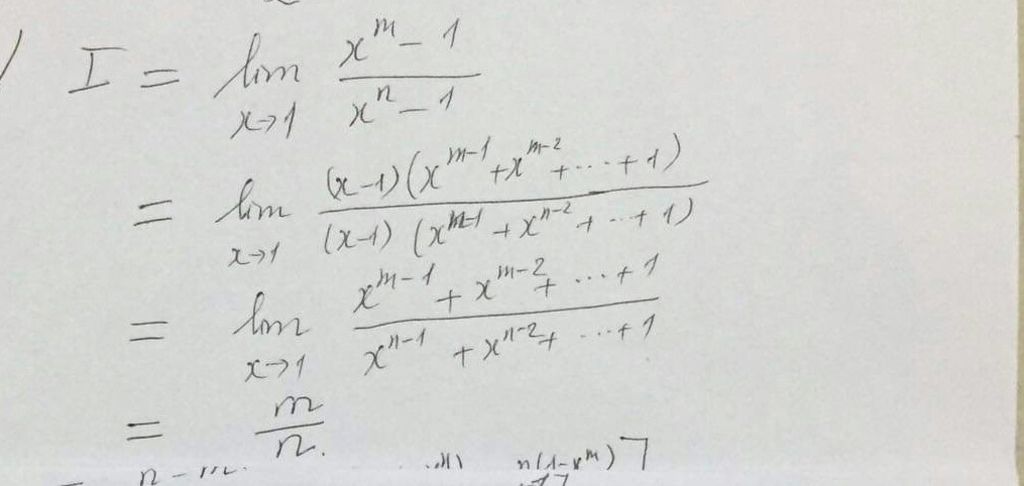 I = lim x→1 (x^m − 1)/(x^n − 1)
= lim x→1 ((x−1)(x^{m−1} + x^{m−2} + ... + 1))/((x−1)(x^{n−1} + x^{n−2} + ... + 1))
= lim x→1 (x^{m−1} + x^{m−2} + ... + 1)/(x^{n−1} + x^{n−2} + ... + 1)
= m/n.
n − m n(1−x^m) ]